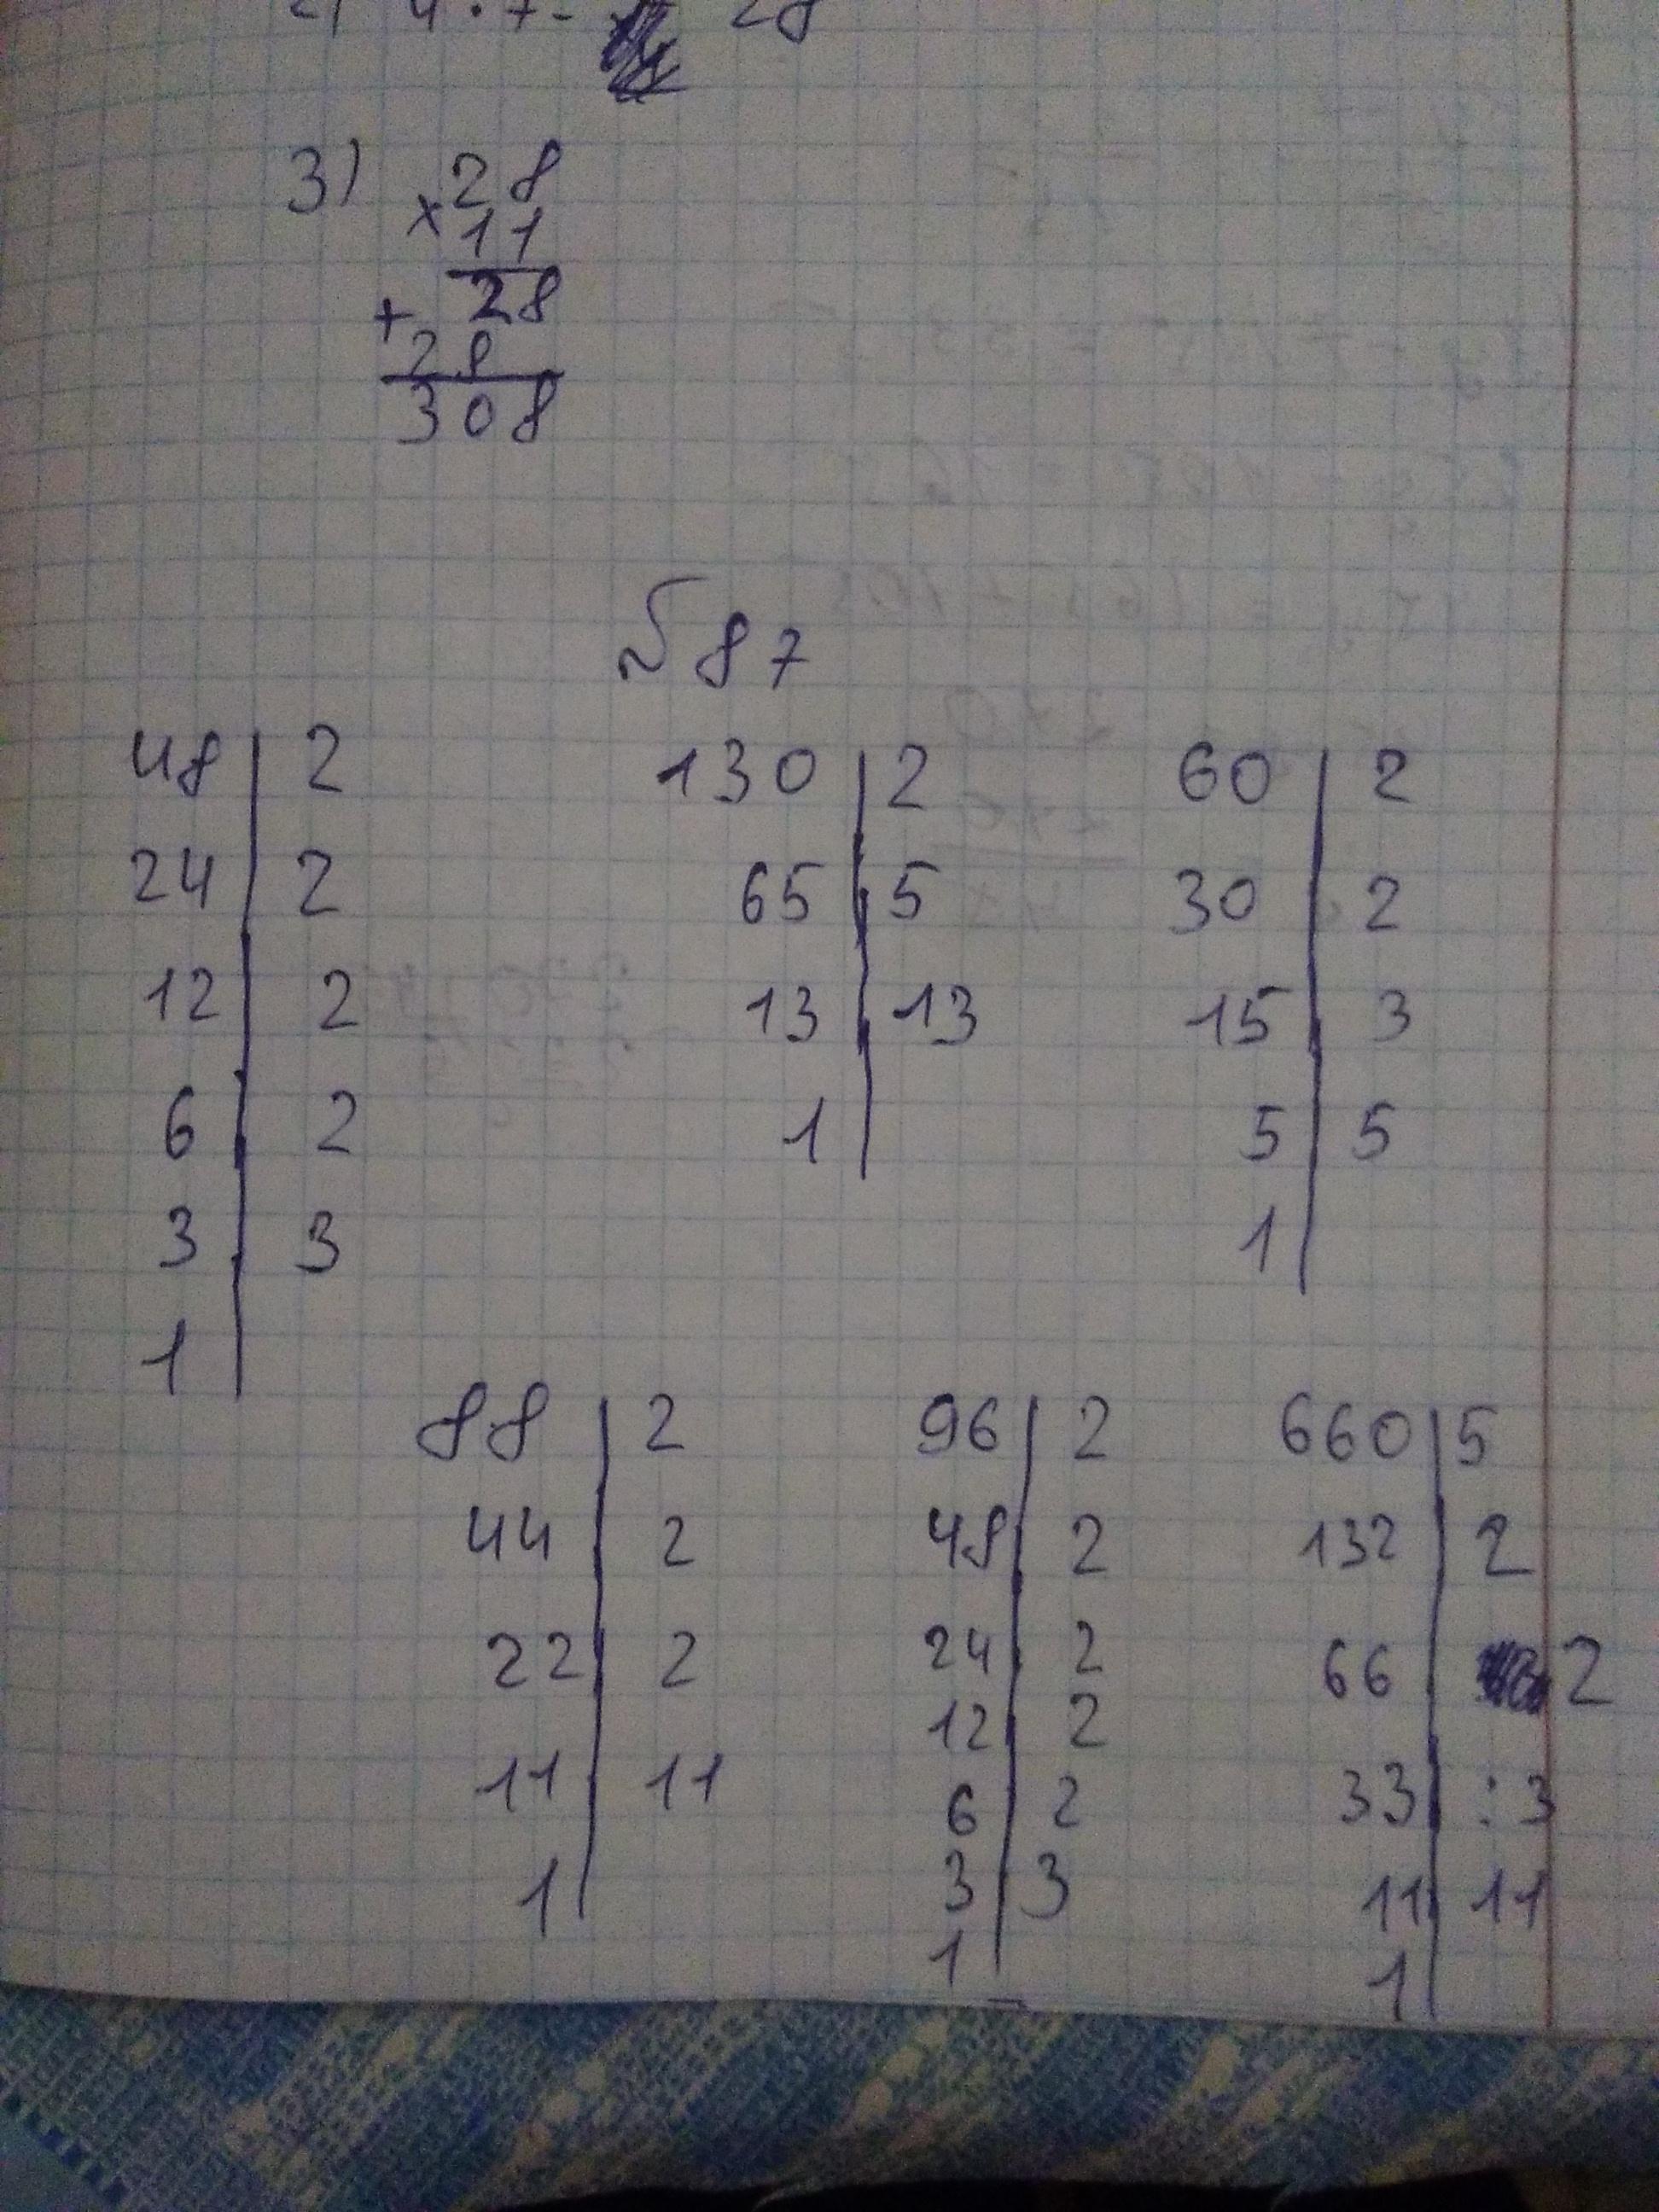 2) 4 · 7 = 28
3) × 28
11
+ 28
28
308
№ 87
48 | 2 130 | 2 60 | 2
24 | 2 65 | 5 30 | 2
12 | 2 13 | 13 15 | 3
6 | 2 1 | 5 | 5
3 | 3 1 |
1 |
88 | 2 96 | 2 660 | 5
44 | 2 48 | 2 132 | 2
22 | 2 24 | 2 66 | 2
12 | 2
11 | 11 6 | 2 33 | : 3
1 | 3 | 3 11 | 11
1 | 1 |